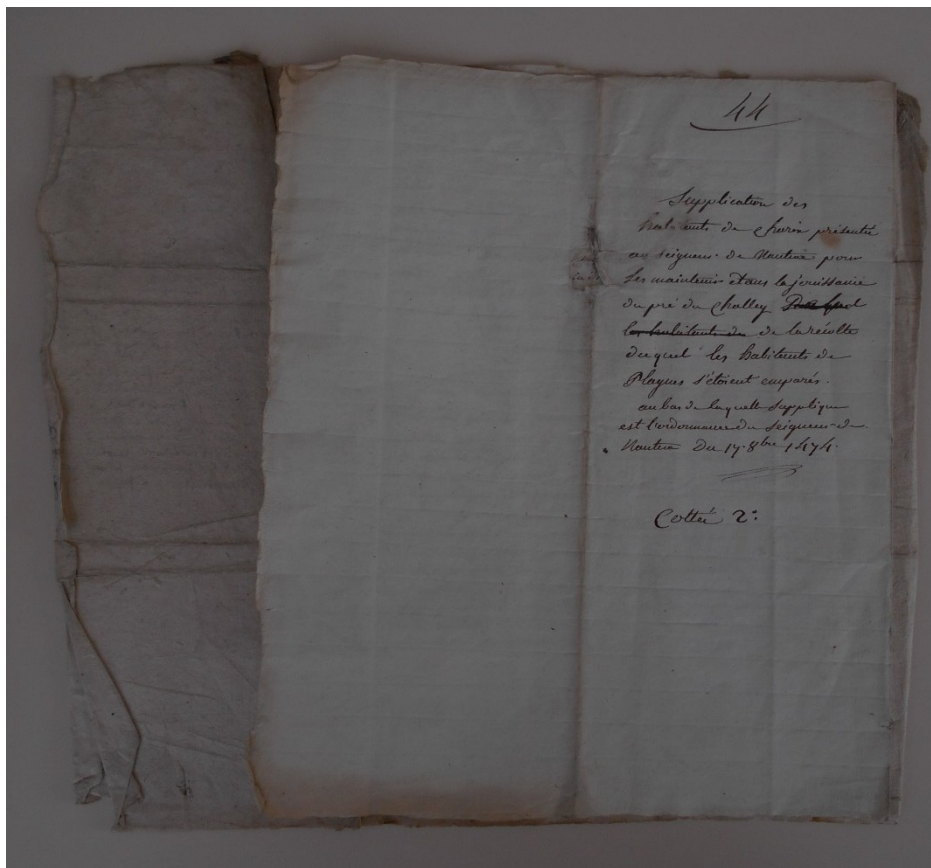 44
Supplication des
habitents de Charix présentée
au seigneur de Nantua pour
les maintenir dans la jouissance
du pré du Challey
les habitents de de la récolte
duquel les habitents de
Plagnes s'étoient emparés.
au bas de laquelle supplique
est l'ordonnance du seigneur de
Nantua Du 17 8bre 1474.
Cottée 2e